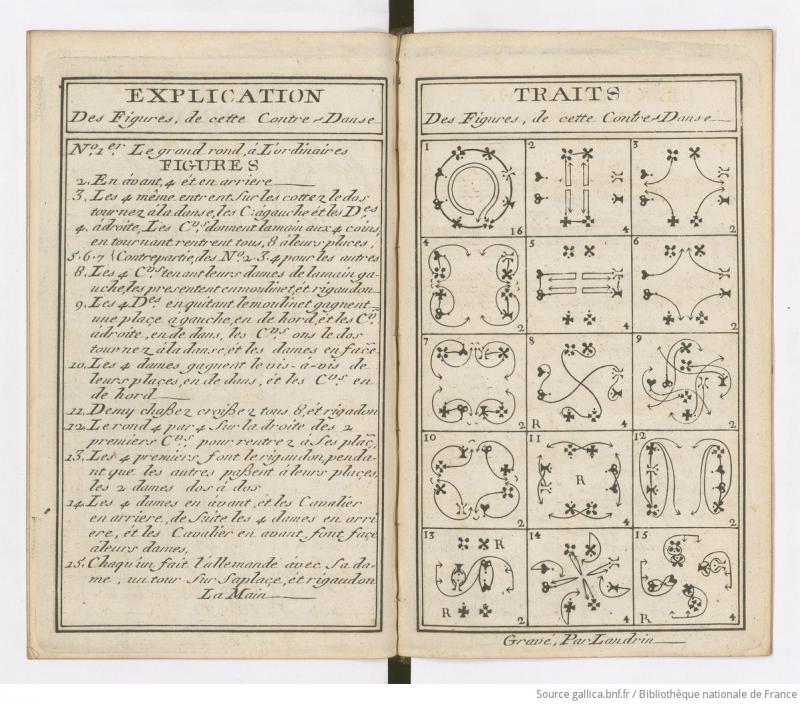 EXPLICATION
Des Figures, de cette Contre-Danse
N.o 1.er Le grand rond, à L'ordinaires
FIGURES
2. En ávant, 4 ét en arriere
3. Les 4 même entrent Sur les cottez le dos
tournez à la danse, les C.' agauche ét les D.es
4. àdroite, Les C.ers donnent lamain aux 4 coins,
en tournant rentrent tous, 8 àleurs places,
5. 6. 7 Contrepartie, des N.o 2. 3. 4 pour les autres
8. Les 4 C.ers tenant leurs dames de lamain ga-
uche, les presentent enmoulinet, ét rigaudon
9. Les 4 D.es en quitant lemoulinet gagnent
une plaçe à gauche, en de hord, ét les C.ers
àdroite, en de dans, les C.ers ons le dos
tournez àla danse, ét les dames en façe
10. Les 4 dames gagnent le vis-a-vis de
leurs plaçes, en de dans, ét les C.ers en
de hord
11. Demy chaßez croißez tous 8, ét rigadon
12. Le rond 4 par 4 Sur la droite des 2
premiers C.ers pour rentrez à Ses plaç.
13. Les 4 premiers font le rigaudon, penda-
nt que les autres paßent àleurs plaçes,
les 2 dames dos à dos
14. Les 4 dames en ávant, ét les Cavalier
en arriere, de Suite les 4 dames en arri
ere, ét les Cavalier en avant, font façe
àleurs dames,
15. Chaqu'un fait l'allemande ávec Sa da-
me, un tour Sur Saplaçe, ét rigaudon
La Main
TRAITS
Des Figures, de cette Contre-Danse
1 2 3
16 2 2
4 5 6
2 4 2
7 8 9
2 R 4 2
10 11 12
2 R 4 2
13 R 14 15
R 2 4 R 4
Gravé, Par Landrin
Source gallica.bnf.fr / Bibliothèque nationale de France